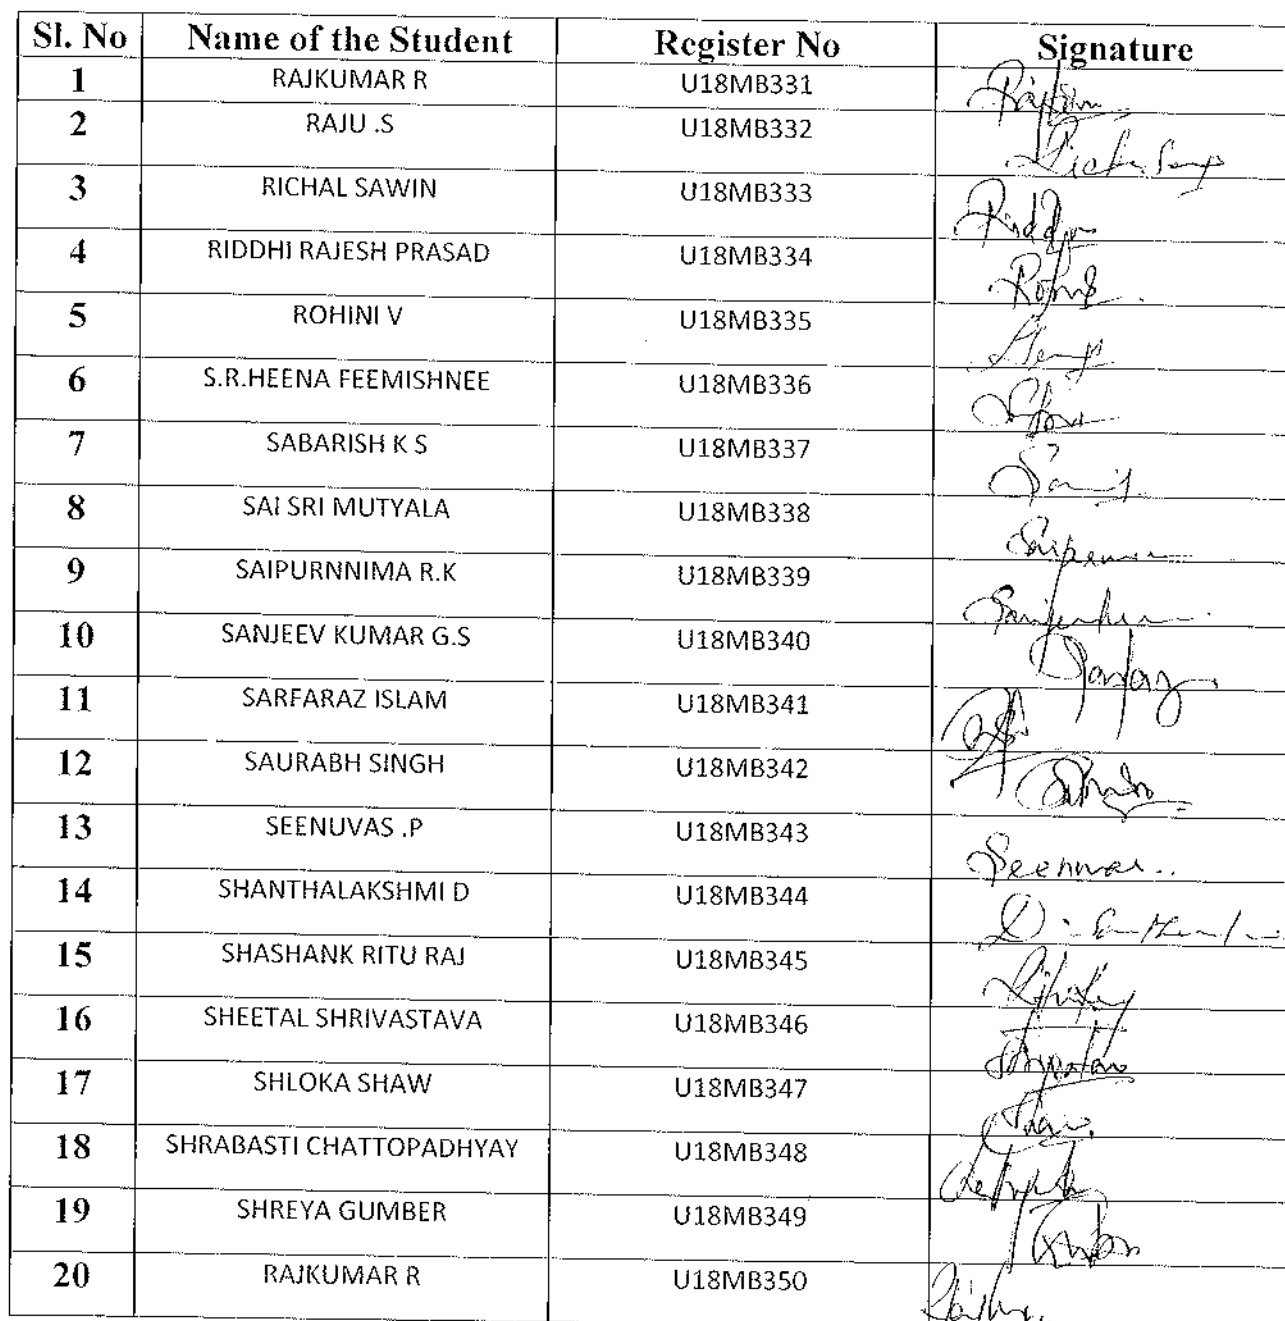 Sl. No Name of the Student Register No Signature
1 RAJKUMAR R U18MB331
2 RAJU .S U18MB332
3 RICHAL SAWIN U18MB333
4 RIDDHI RAJESH PRASAD U18MB334
5 ROHINI V U18MB335
6 S.R.HEENA FEEMISHNEE U18MB336
7 SABARISH K S U18MB337
8 SAI SRI MUTYALA U18MB338
9 SAIPURNNIMA R.K U18MB339
10 SANJEEV KUMAR G.S U18MB340
11 SARFARAZ ISLAM U18MB341
12 SAURABH SINGH U18MB342
13 SEENUVAS .P U18MB343
14 SHANTHALAKSHMI D U18MB344
15 SHASHANK RITU RAJ U18MB345
16 SHEETAL SHRIVASTAVA U18MB346
17 SHLOKA SHAW U18MB347
18 SHRABASTI CHATTOPADHYAY U18MB348
19 SHREYA GUMBER U18MB349
20 RAJKUMAR R U18MB350